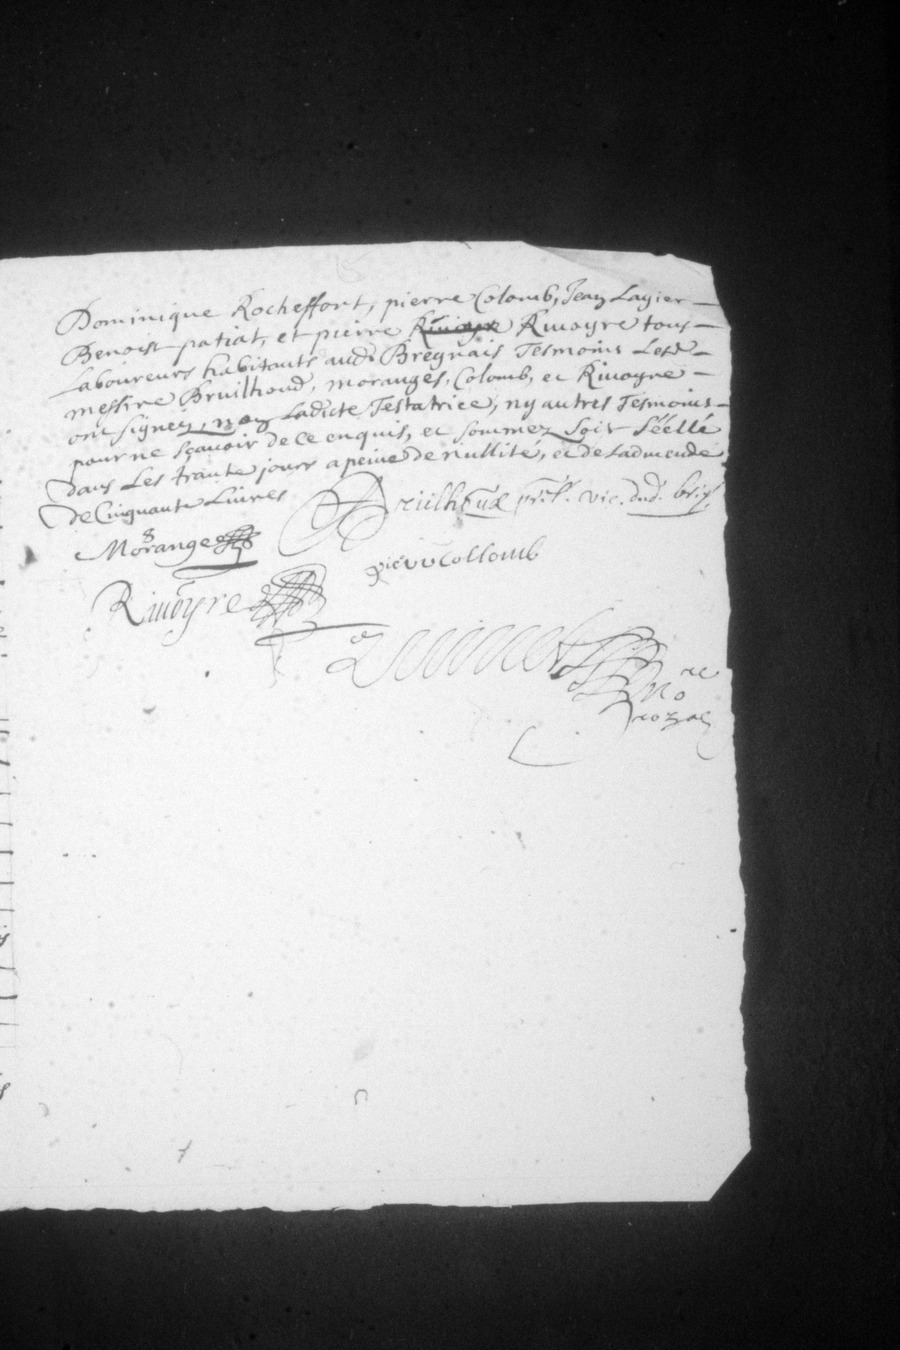 Dominique Rocheffort, pierre Colomb, Jean Lagier
Benoist patiat, et pierre Rivoyre Rivoyre tous
Laboureurs habitants aud. Bregnais Tesmoins Lesd.
messire Bruilhoud, moranges, Colomb, et Rivoyre
ont signéz, non Ladicte Testatrice, ny autres Tesmoins
pour ne sçavoir de ce enquis, et sommez Soit Séellé
dans Les trante jours a peine de nullité, et de Ladmende
de Cinquante Livres
Bruilhoud vic. dud.
Morange
pierre Collomb
Rivoyre
no re
royal